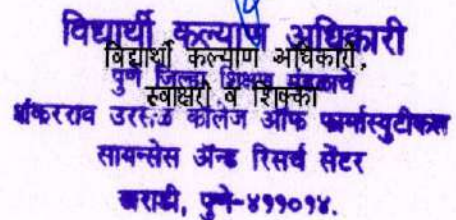 विद्यार्थी कल्याण अधिकारी
विद्यार्थी कल्याण अधिकारी,
पुणे जिल्हा शिक्षण मंडळाचे
स्वाक्षरी व शिक्का
शंकरराव उरसळ कॉलेज ऑफ फार्मास्युटीकल
सायन्सेस ॲन्ड रिसर्च सेंटर
खराडी, पुणे-४११०१४.